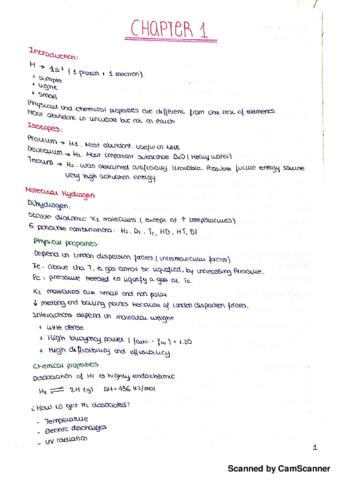 CHAPTER 1
Introduction:
H → 1s¹ (1 proton + 1 electron)
+ simple
+ light
+ small
Physical and chemical properties are different from the rest of elements
Most abundant in universe but not on Earth
Isotopes:
Protium → H1. Most abundant. Useful in NMR
Deuterium → H2. Most important substance D₂O (Heavy water)
Tritium → H3. Was obtained artificially unstable. Possible future energy source
very high activation energy
Molecular Hydrogen
Dihydrogen:
Stable diatomic X₂ molecules (except at ↑ temperatures)
6 possible combinations: H₂, D₂, T₂, HD, HT, DT
Physical properties:
Depend on London dispersion forces (intermolecular forces)
Tc: above this T, a gas cannot be liquefied, by increasing pressure.
Pc = pressure needed to liquefy a gas at Tc.
X₂ molecules are small and non polar
↓ melting and boiling points because of London dispersion forces.
Interactions depend on molecular weight
+ little dense
+ High buoyancy power (ρair - ρH₂) = 1.20
+ High diffusibility and effusibility
Chemical properties
Dissociation of H₂ is highly endothermic
H₂ ⇌ 2H (g) ΔH = 436 kJ/mol
¿How to get H₂ dissociated?
- Temperature
- Electric discharges
- UV radiation
1
Scanned by CamScanner